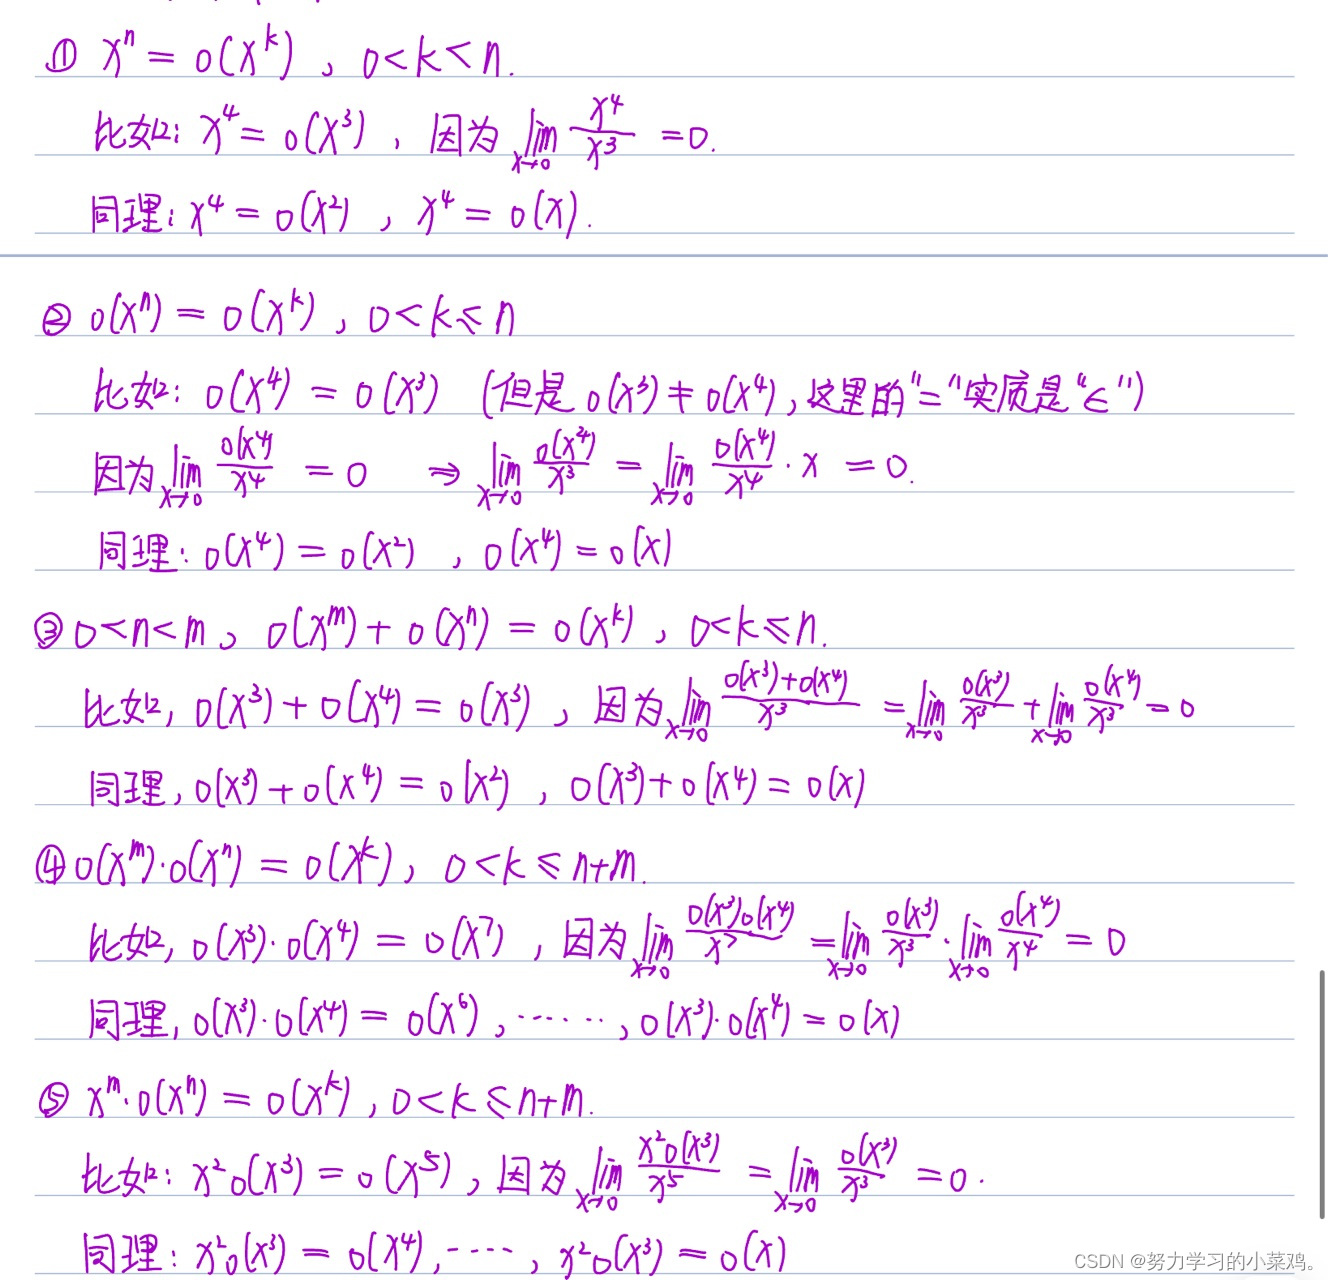 ① xⁿ = o(x^k) , 0<k<n.
比如: x⁴ = o(x³) , 因为 lim_{x→0} x⁴/x³ = 0.
同理: x⁴ = o(x²) , x⁴ = o(x).
② o(xⁿ) = o(x^k) , 0<k≤n
比如: o(x⁴) = o(x³) (但是 o(x³) ≠ o(x⁴), 这里的"="实质是"∈")
因为 lim_{x→0} o(x⁴)/x⁴ = 0 ⇒ lim_{x→0} o(x⁴)/x³ = lim_{x→0} o(x⁴)/x⁴ · x = 0.
同理: o(x⁴) = o(x²) , o(x⁴) = o(x)
③ 0<n<m , o(x^m) + o(xⁿ) = o(x^k) , 0<k≤n.
比如, o(x³) + o(x⁴) = o(x³) , 因为 lim_{x→0} (o(x³)+o(x⁴))/x³ = lim_{x→0} o(x³)/x³ + lim_{x→0} o(x⁴)/x³ = 0
同理, o(x³) + o(x⁴) = o(x²) , o(x³) + o(x⁴) = o(x)
④ o(x^m)·o(xⁿ) = o(x^k) , 0<k≤n+m.
比如, o(x³)·o(x⁴) = o(x⁷) , 因为 lim_{x→0} o(x³)o(x⁴)/x⁷ = lim_{x→0} o(x³)/x³ · lim_{x→0} o(x⁴)/x⁴ = 0
同理, o(x³)·o(x⁴) = o(x⁶) , ······ , o(x³)·o(x⁴) = o(x)
⑤ x^m·o(xⁿ) = o(x^k) , 0<k≤n+m.
比如: x²o(x³) = o(x⁵) , 因为 lim_{x→0} x²o(x³)/x⁵ = lim_{x→0} o(x³)/x³ = 0.
同理: x²o(x³) = o(x⁴) , ···· , x²o(x³) = o(x)
CSDN @努力学习的小菜鸡。